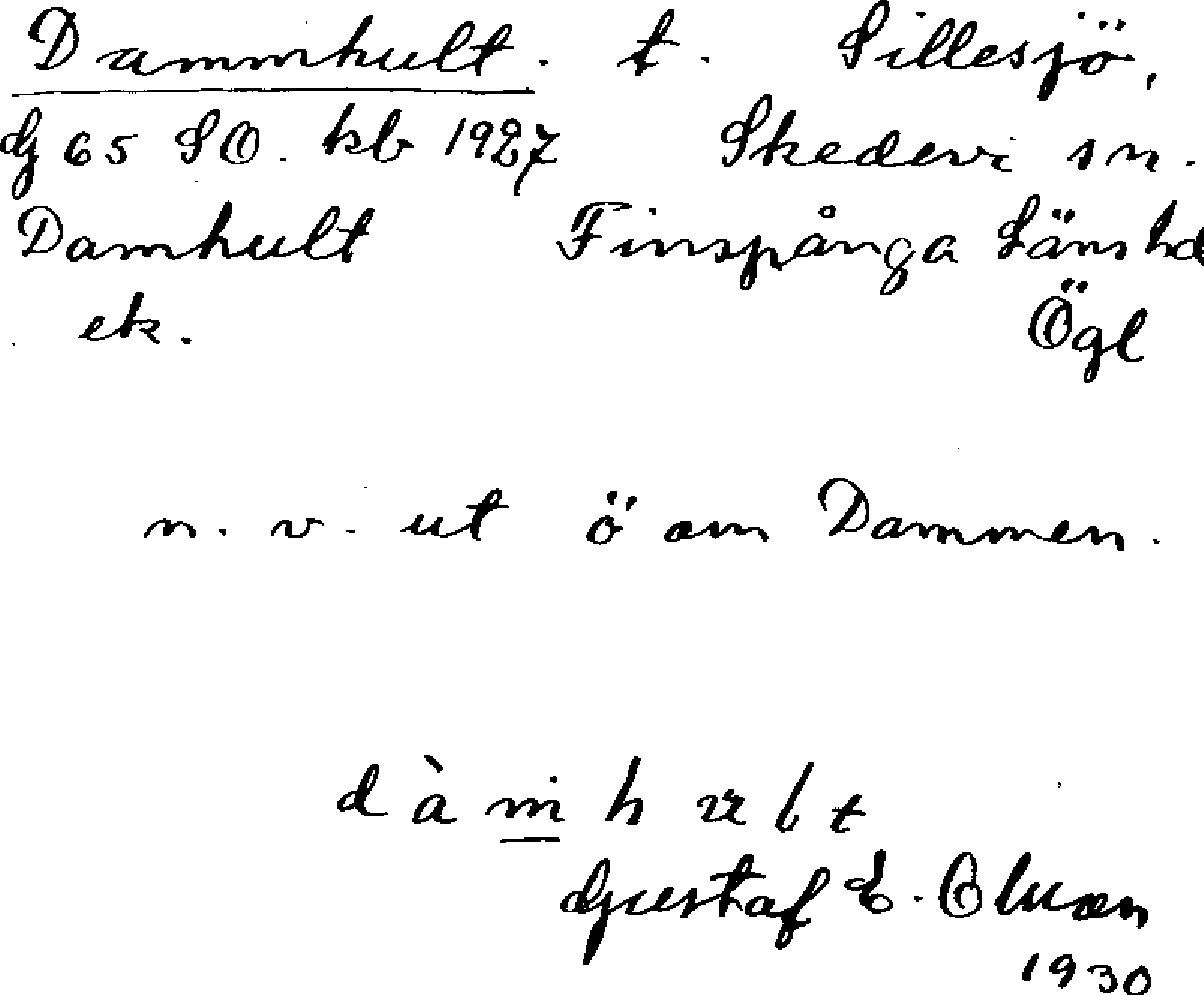 Dammhult. t. Sillesjö,
G 65 SO. kb 1927 Skedevi sn.
Damhult Finspånga Läns hd
ek. Ögl
n. v. ut ö om Dammen.
d à m h u l t
Gustaf E. Olson
1930